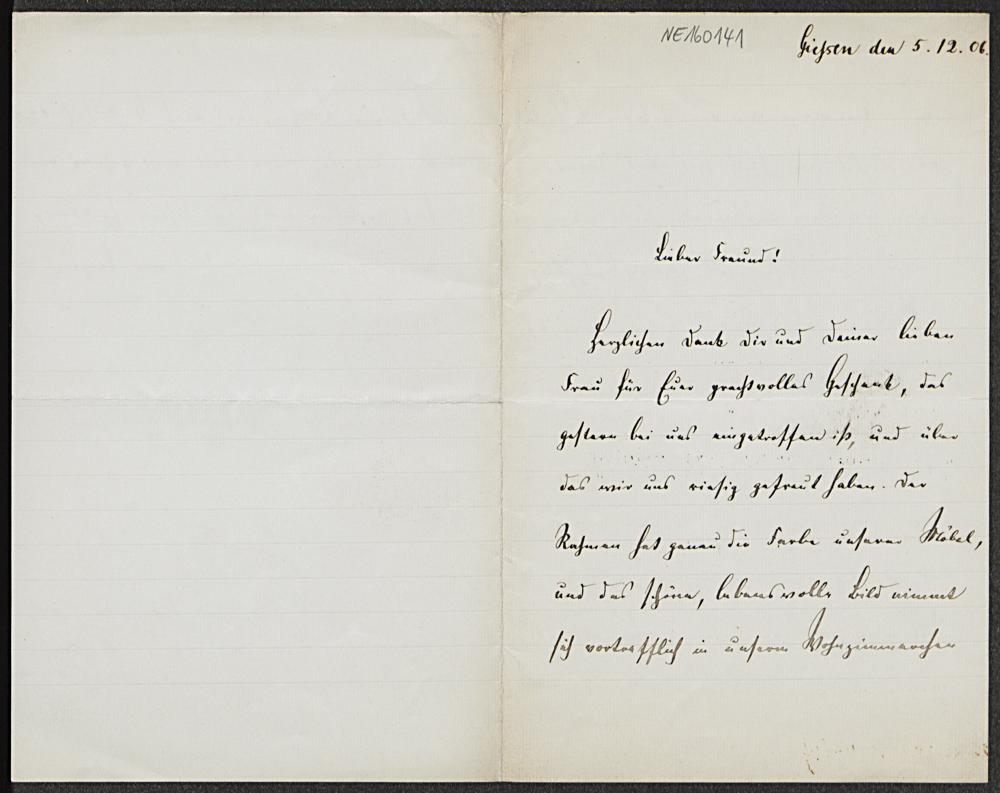 NE160141
Gießen den 5.12.06.
Lieber Freund!
Herzlichen Dank Dir und Deiner lieben
Frau für Euer prachtvolles Geschenk, das
gestern bei uns eingetroffen ist, und über
das wir uns riesig gefreut haben. Der
Rahmen hat genau die Farbe unserer Möbel,
und das schöne, lebensvolle Bild nimmt
sich vortrefflich in unserem Wohnzimmerchen